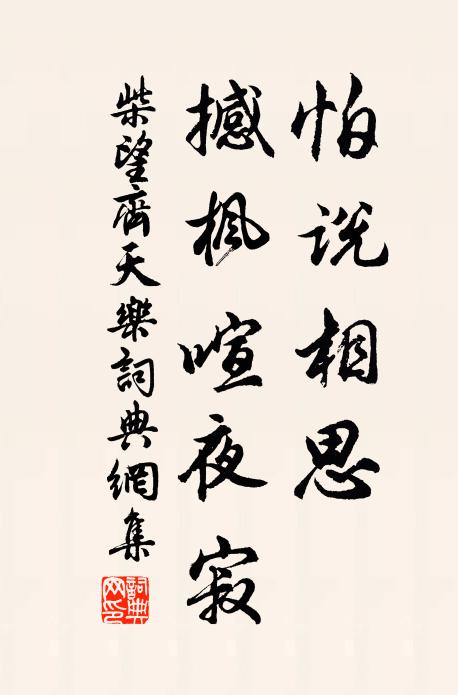 怕说相思
撼枫喧夜寂
柴望齊天樂詞典網集
詞典网印